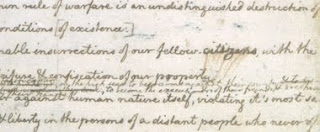 own rule of warfare is an undistinguished destruction of
onditions [of existence:]
nable insurrections of our fellow citizens, with the
feiture & confiscation of our property
er against human nature itself, violating it's most sa
& liberty in the persons of a distant people who never of